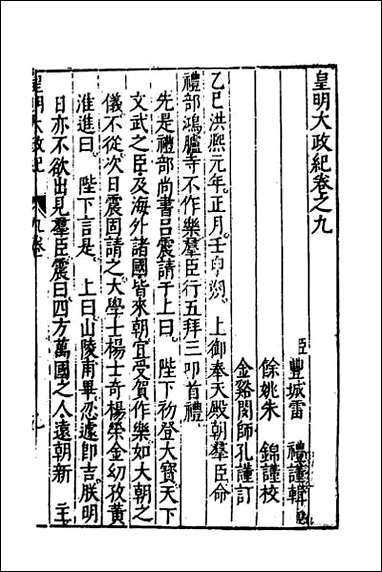 皇明大政紀卷之九
臣豐城雷　禮謹輯
餘姚朱　錦謹校
金谿閔師孔謹訂
乙巳洪熙元年。正月。壬申朔。上御奉天殿朝羣臣命
禮部鴻臚寺不作樂羣臣行五拜三叩首禮
先是禮部尚書呂震請于上曰。陛下初登大寶天下
文武之臣及海外諸國皆來朝宜受賀作樂如大朝之
儀不從次日震固請之大學士楊士奇楊榮金幼孜黃
淮進曰。陛下言是。上曰山陵甫畢忍遽即吉。朕明
日亦不欲出見羣臣震曰四方萬國之人遠朝新　主
皇明大政紀　九卷　一